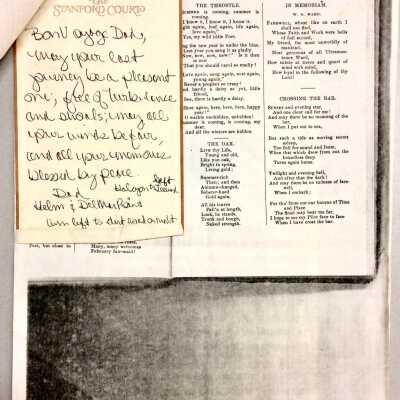 Bon Voyage Dad,
May your last
journey be a pleasant
one; free of turbulence
and shoals; may all
your winds be fair,
and all your memories
blessed by peace.
Dad
Helm
THE THROSTLE.
SUMMER is coming, summer is
coming.
I know it, I know it, I know it.
Light again, leaf again, life again,
love again,"
Yes, my wild little Poet.
Sing the new year in under the blue.
Last year you sang it as gladly.
"New, new, new, new!" Is it then
so new
That you should carol so madly!
Love again, song again, nest again,
young again,"
Never a prophet so crazy!
And hardly a daisy as yet, little
friend,
See, there is hardly a daisy.
Here again, here, here, here, happy
year!"
O warble unchidden, unbidden!
Summer is coming, is coming, my
dear,
And all the winters are hidden.
THE OAK.
Live thy Life,
Young and old,
Like yon oak,
Bright in spring,
Living gold;
Summer-rich
Then; and then
Autumn-changed,
Soberer-hued
Gold again.
All his leaves
Fall'n at length,
Look, he stands,
Trunk and bough,
Naked strength.
IN MEMORIAM.
W. G. WARD.
FAREWELL, whose like on earth I
shall not find,
Whose Faith and Work were bells
of full accord,
My friend, the most unworldly of
mankind,
Most generous of all Ultramon-
tanes, Ward,
How subtle at tierce and quart of
mind with mind,
How loyal in the following of thy
Lord!
CROSSING THE BAR.
SUNSET and evening star,
And one clear call for me!
And may there be no moaning of the
bar,
When I put out to sea,
But such a tide as moving seems
asleep,
Too full for sound and foam,
When that which drew from out the
boundless deep
Turns again home.
Twilight and evening bell,
And after that the dark!
And may there be no sadness of fare-
well,
When I embark;
For tho' from out our bourne of Time
and Place
The flood may bear me far,
I hope to see my Pilot face to face
When I have crost the bar.
Fost, but close to
Many, many welcomes
February fair-maid!